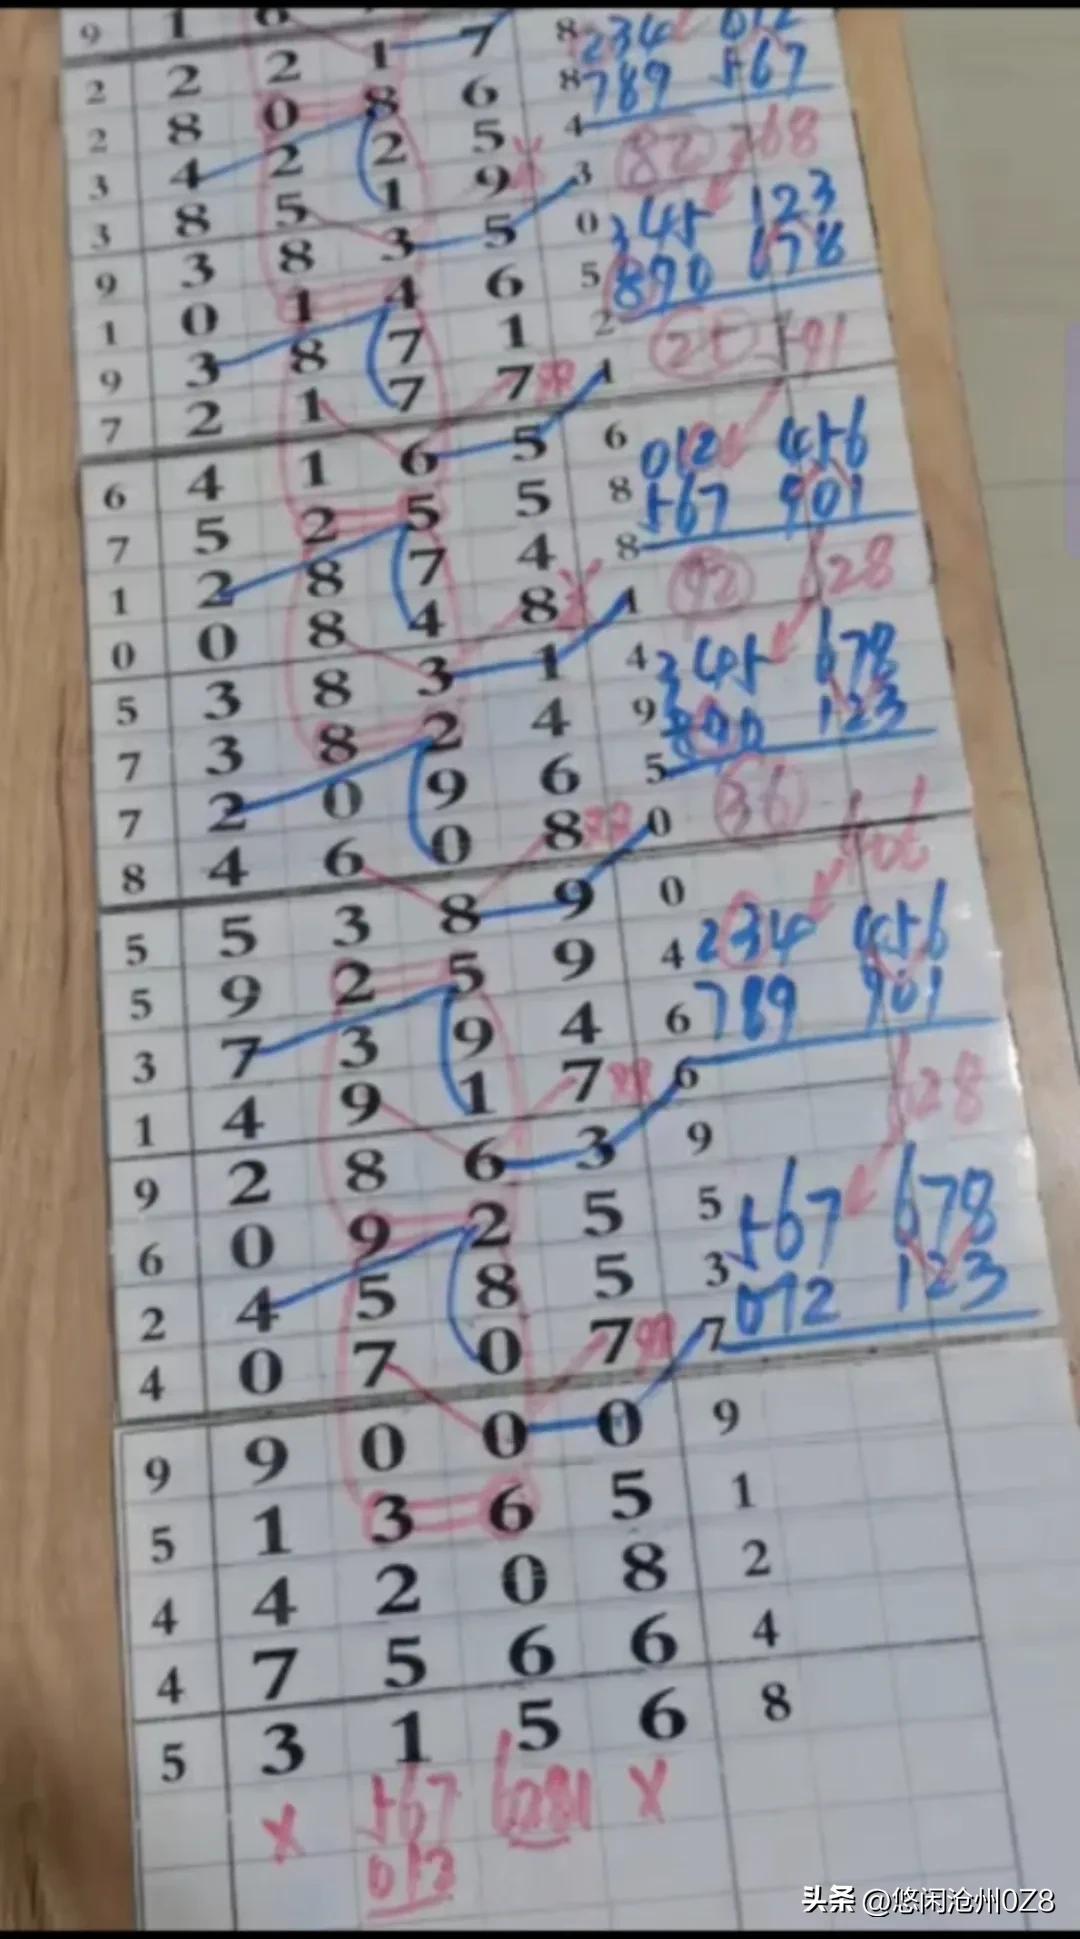 2 2 2 1 7 8 234 012
2 8 0 8 6 8 789 567
3 4 2 2 5 4 82 768
3 8 5 1 9 3
9 3 8 3 5 0 345 123
1 0 1 4 6 5 890 678
9 3 8 7 1 2 25 591
7 2 1 7 7 1
6 4 1 6 5 6 012 456
7 5 2 5 5 8 567 901
1 2 8 7 4 8 92 628
0 0 8 4 8 1
5 3 8 3 1 4 345 678
7 3 8 2 4 9 890 123
7 2 0 9 6 5 36
8 4 6 0 8 0
5 5 3 8 9 0 234 456
5 9 2 5 9 4 789 901
3 7 3 9 4 6
1 4 9 1 7 6 628
9 2 8 6 3 9
6 0 9 2 5 5 567 678
2 4 5 8 5 3 012 123
4 0 7 0 7 7
9 9 0 0 0 9
5 1 3 6 5 1
4 4 2 0 8 2
4 7 5 6 6 4
5 3 1 5 6 8
x 567 6281 x
012
头条 @悠闲沧州0Z8